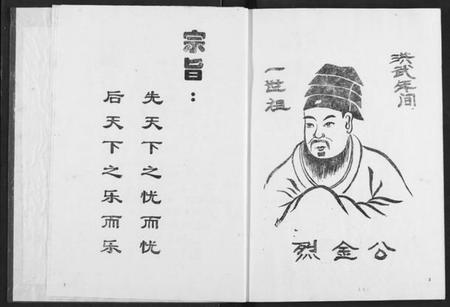 宗旨：
先天下之忧而忧
后天下之乐而乐
洪武年间
一世祖
烈金公